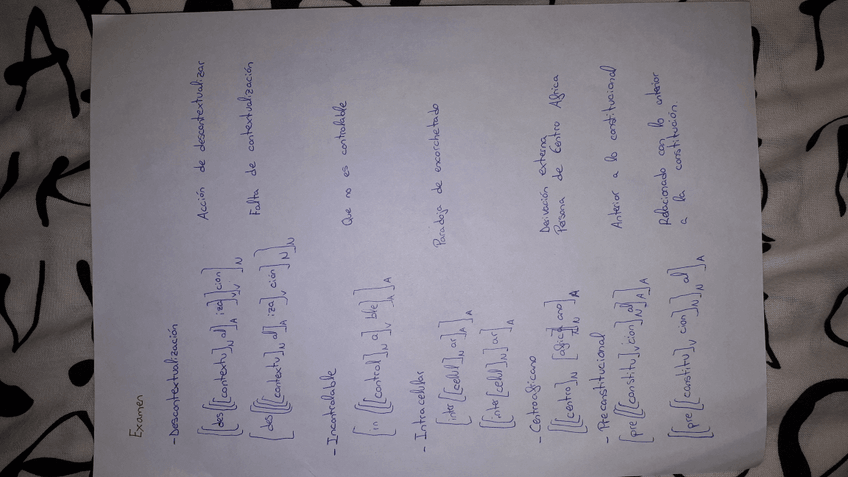 Examen
- Descontextualización
[[des[[[contextu]N al]A iza]V]V ción]N Acción de descontextualizar
[des[[[[contextu]N al]A iza]V ción]N]N Falta de contextualización
- Incontrolable
[in[[[control]N a]V ble]A]A Que no es controlable
- Intracelular
[inter[[celul]N ar]A]A Paradoja de encorchetado
[[inter[celul]N]N ar]A
- Centroafricano Derivación externa
[[centro]N [africa]N ano]A Persona de Centro Africa
- Preconstitucional
[pre[[[constitu]V ción]N al]A]A Anterior a lo constitucional
[[pre[[constitu]V ción]N]N al]A Relacionado con lo anterior
a la constitución